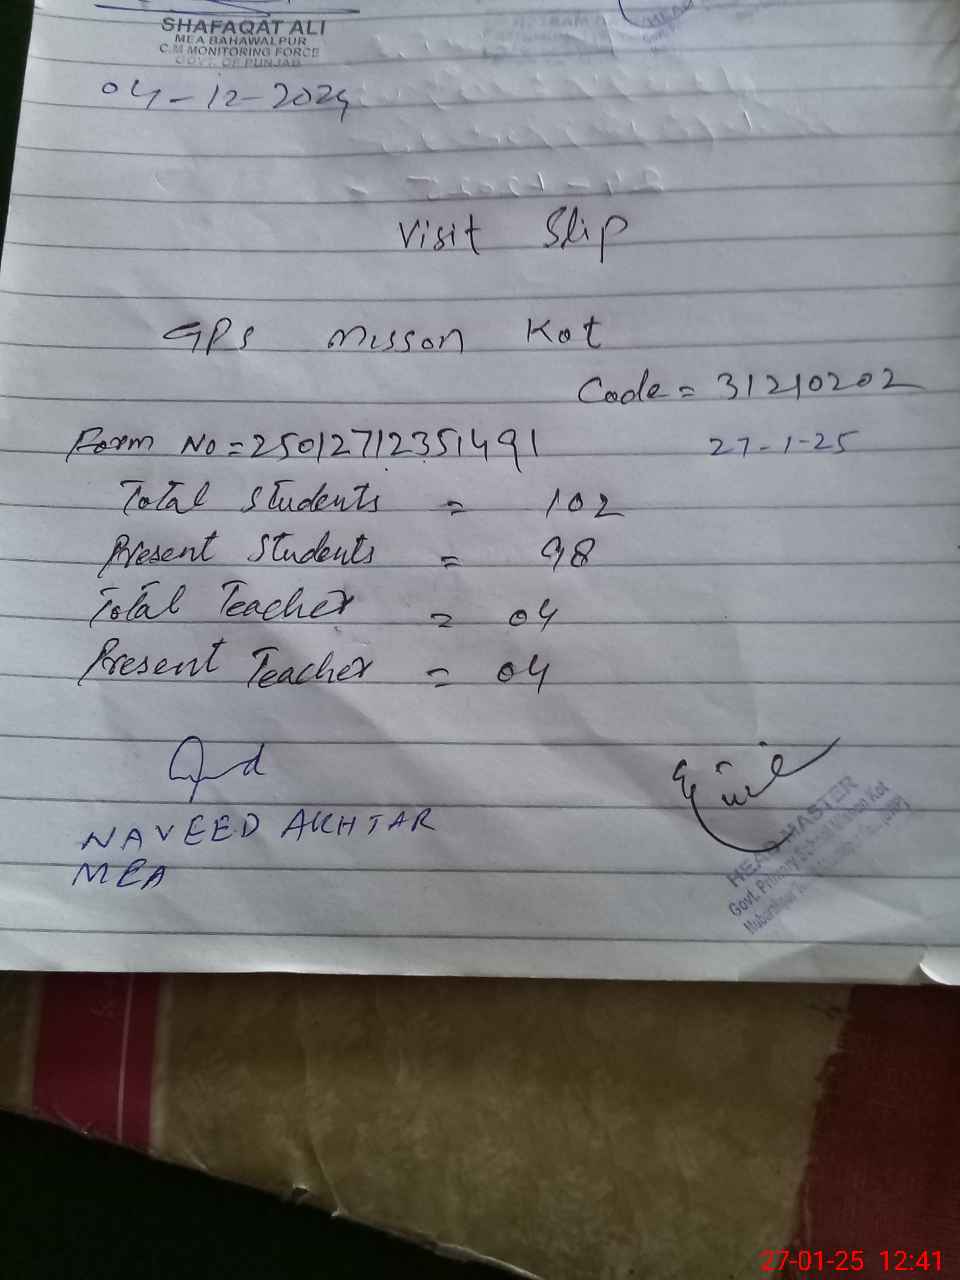 SHAFAQAT ALI
MEA BAHAWALPUR
C.M MONITORING FORCE
GOVT. OF PUNJAB
04-12-2024
Visit Slip
GPS Misson Kot
Code = 31210202
Form No = 25012712351491 27-1-25
Total Students = 102
Present Students = 98
Total Teacher = 04
Present Teacher = 04
NAVEED AKHTAR
MEA
HEAD MASTER
Govt. Primary School Kot
27-01-25 12:41